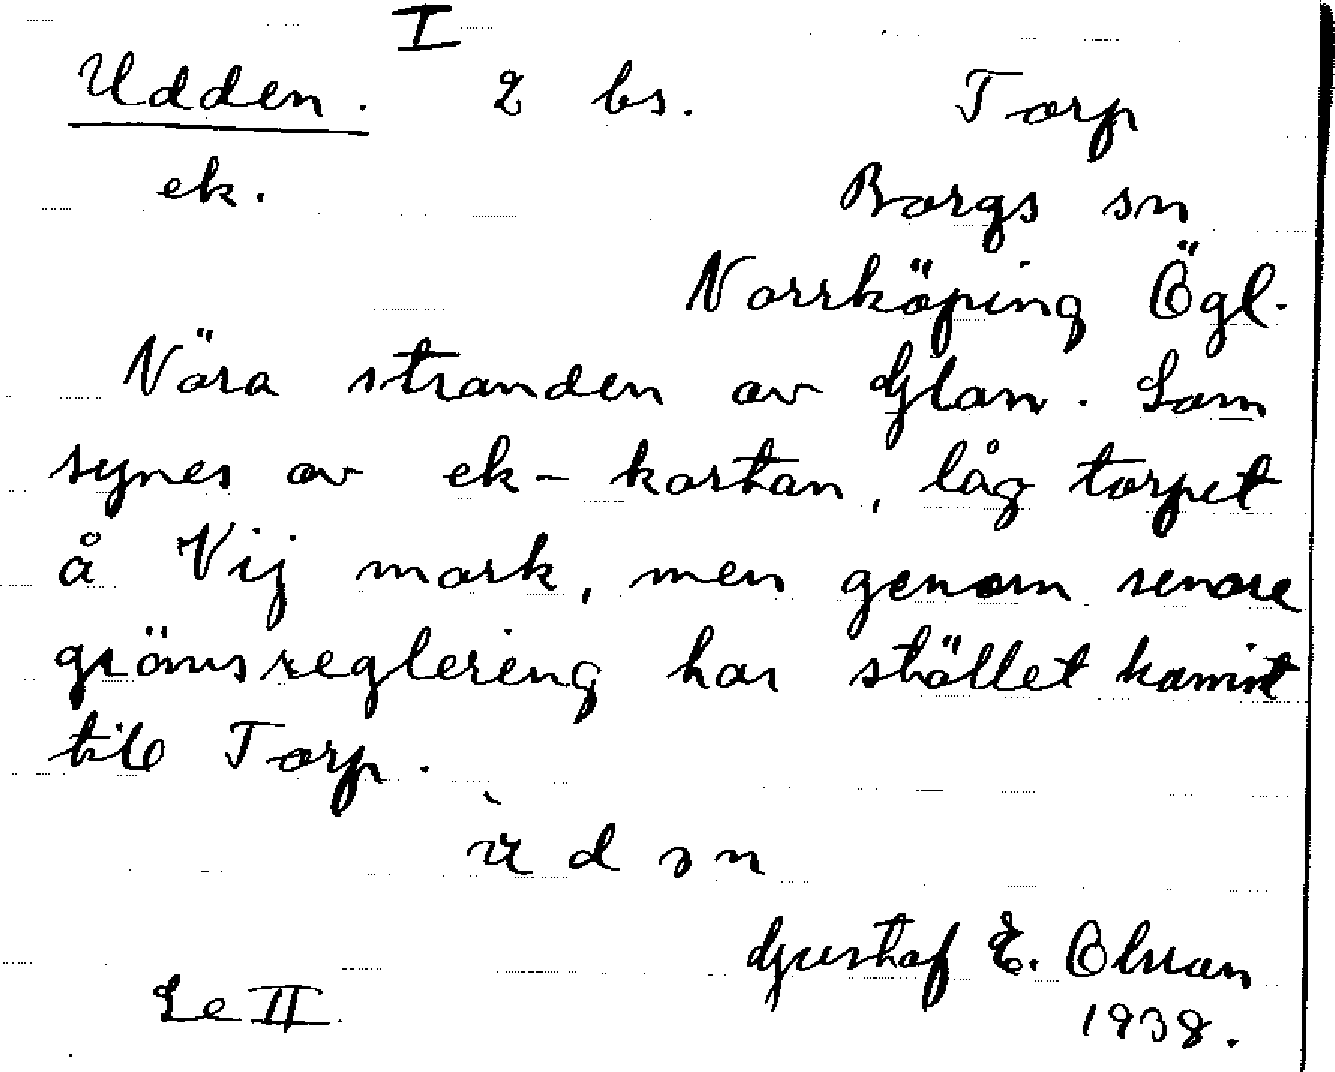 I
Udden. 2 bs. Torp
ek. Borgs sn
Norrköping Ögl.
Nära stranden av Glan. Som
synes av ek-kartan, låg torpet
å Vij mark, men genom senare
gränsreglering har stället kommit
till Torp.
d n
Gustaf E. Olsson
Se II 1938.